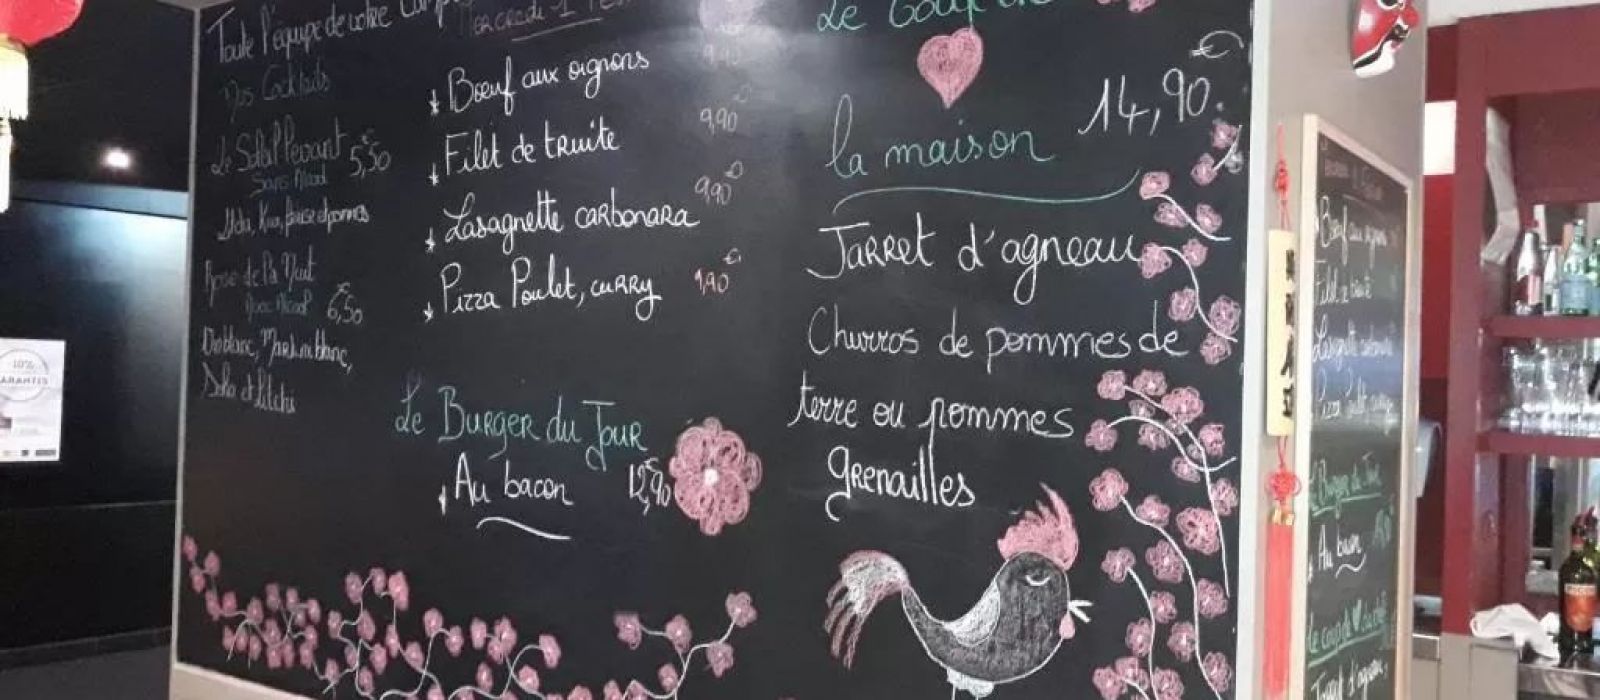 Toute l'équipe de votre
Nos Cocktails
Le Soleil Levant 5,50€
Sans Alcool
Rose de la Nuit
Avec Alcool 6,50€
Soho et Litchi
Mercredi 1
* Bœuf aux oignons 9,90
* Filet de truite 9,90
* Lasagnette carbonara 9,90
* Pizza Poulet, curry 9,90€
Le Burger du Jour
* Au bacon 12,90€
Le Coup de
la maison 14,90€
Jarret d'agneau
Churros de pommes de
terre ou pommes
grenailles
Bœuf aux oignons
Filet de truite
Lasagnette carbonara
Pizza Poulet, curry
Le Burger du Jour
* Au bacon
Le coup de
Jarret d'agneau